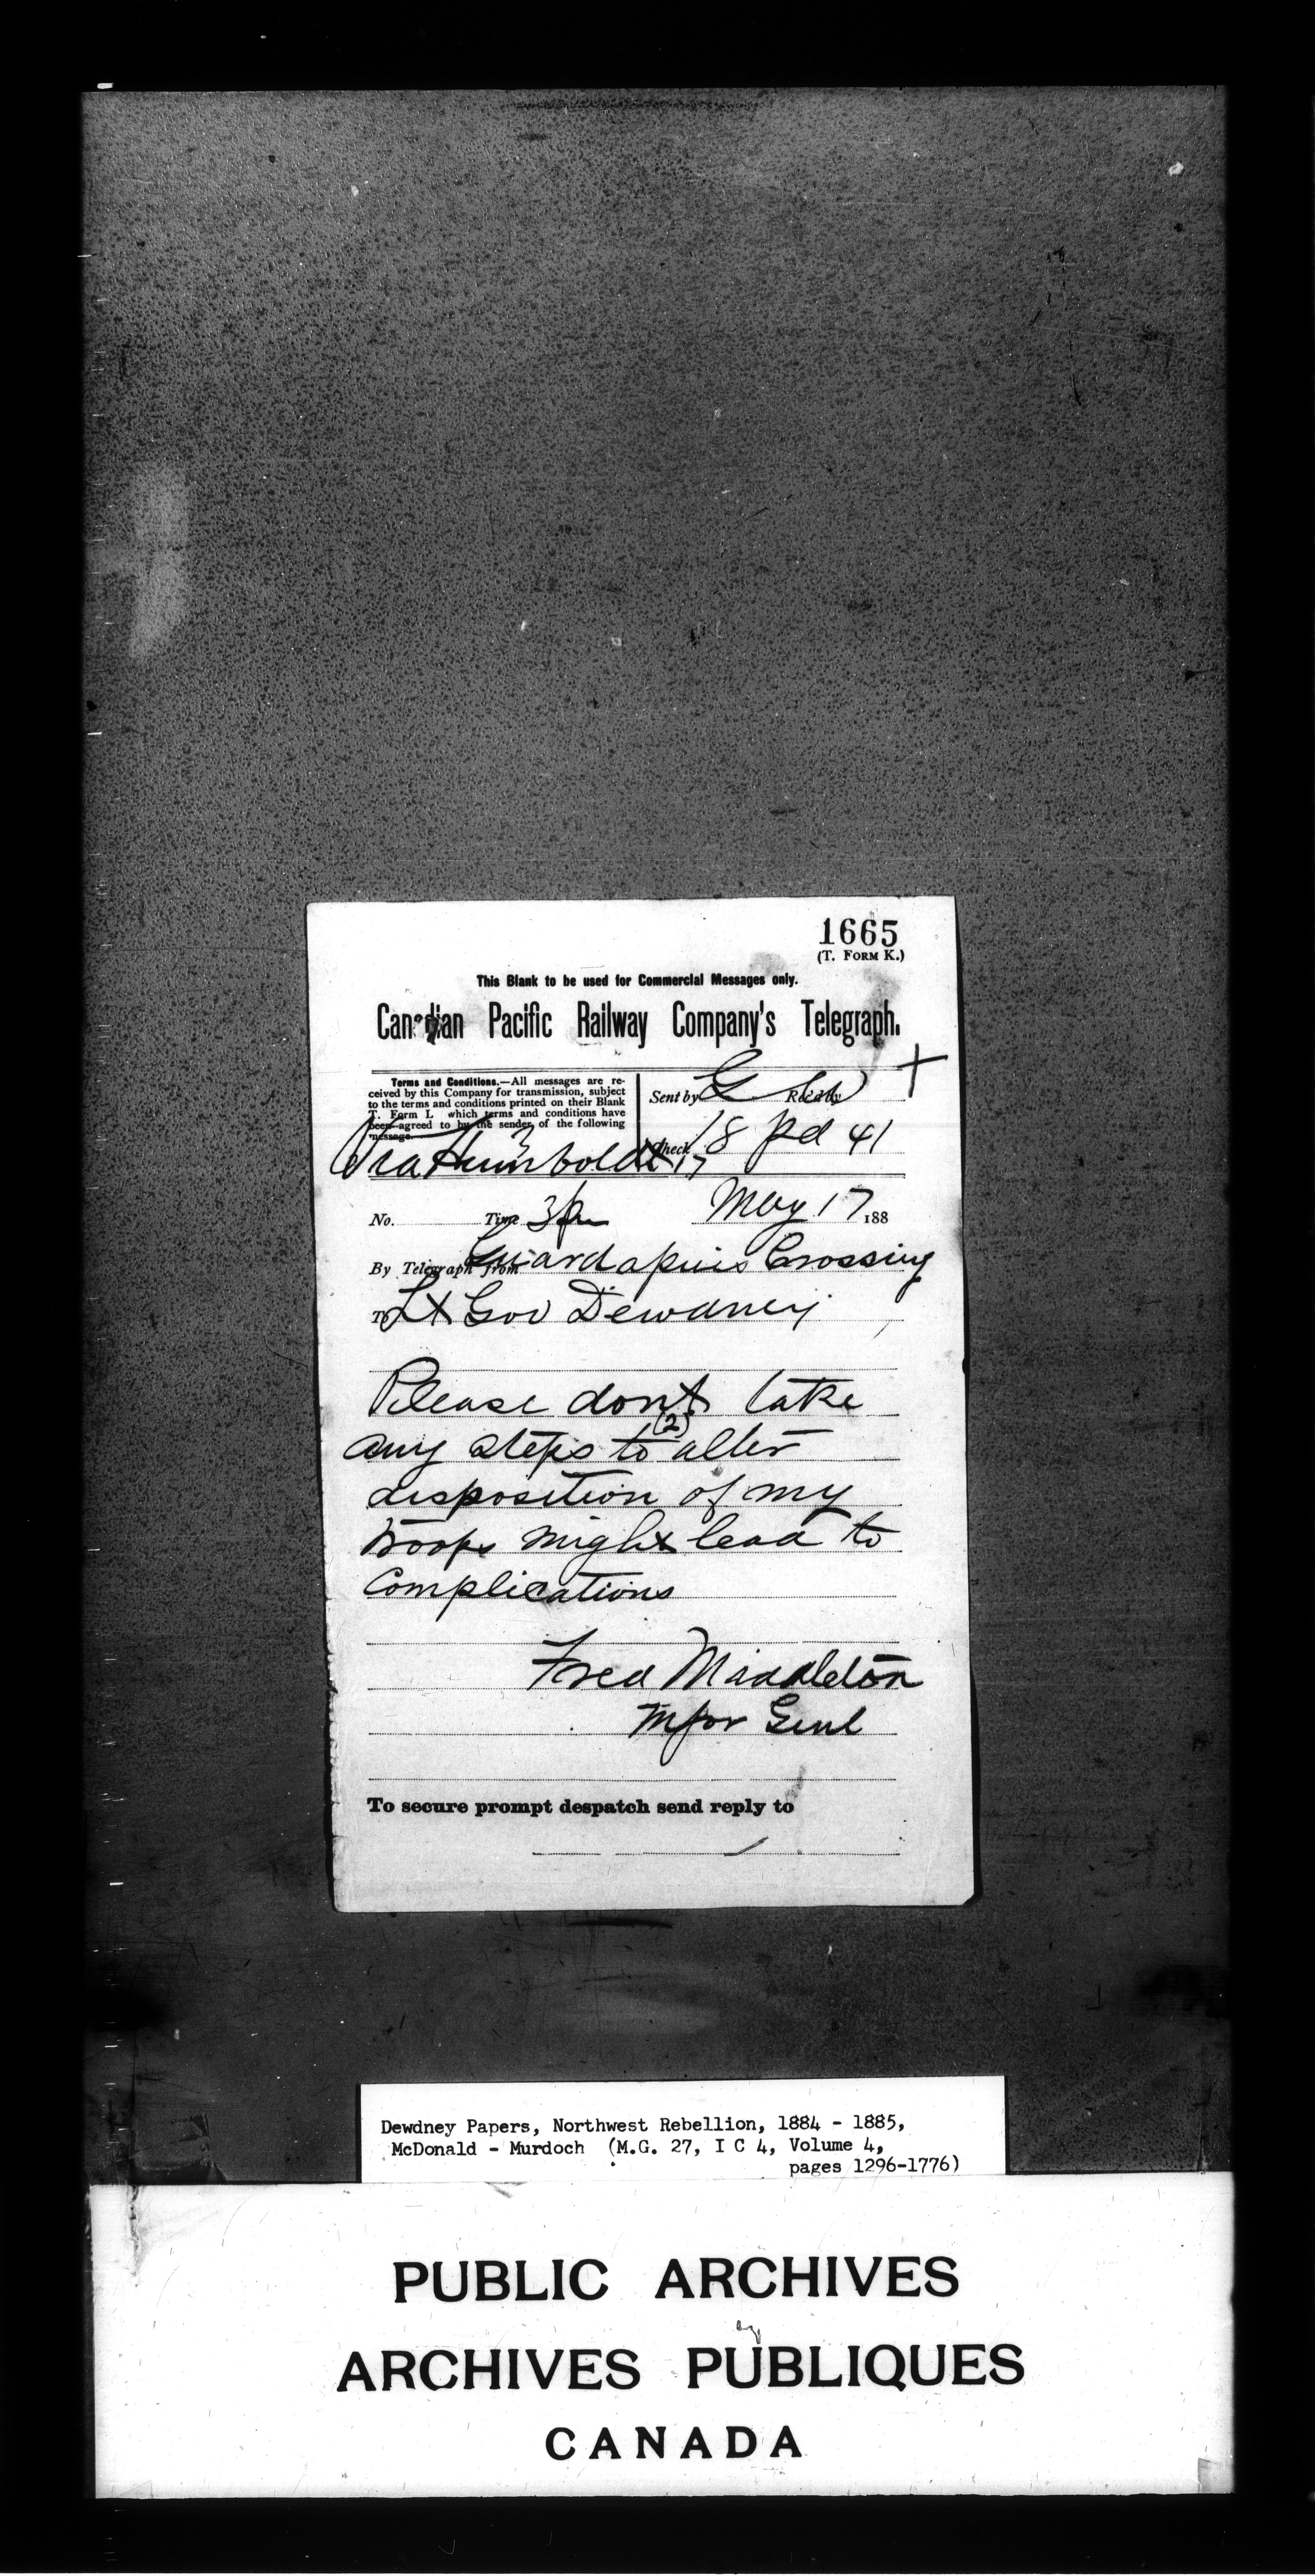 1665
(T. FORM K.)
This Blank to be used for Commercial Messages only.
Canadian Pacific Railway Company's Telegraph.
Terms and Conditions.—All messages are re-
ceived by this Company for transmission, subject
to the terms and conditions printed on their Blank
T. Form L which terms and conditions have
been agreed to by the sender of the following
message.
Sent by G Rec'd by
Check 18 Pd 41
Via Humboldt 17
No. Time 3 pm May 17 188
By Telegraph from Guardapuis Crossing
To Lt Gov Dewdney
Please dont take
any steps to (2) alter
disposition of my
troops might lead to
complications
Fred Middleton
Mjor Genl
To secure prompt despatch send reply to
Dewdney Papers, Northwest Rebellion, 1884 - 1885,
McDonald - Murdoch (M.G. 27, I C 4, Volume 4,
pages 1296-1776)
PUBLIC ARCHIVES
ARCHIVES PUBLIQUES
CANADA